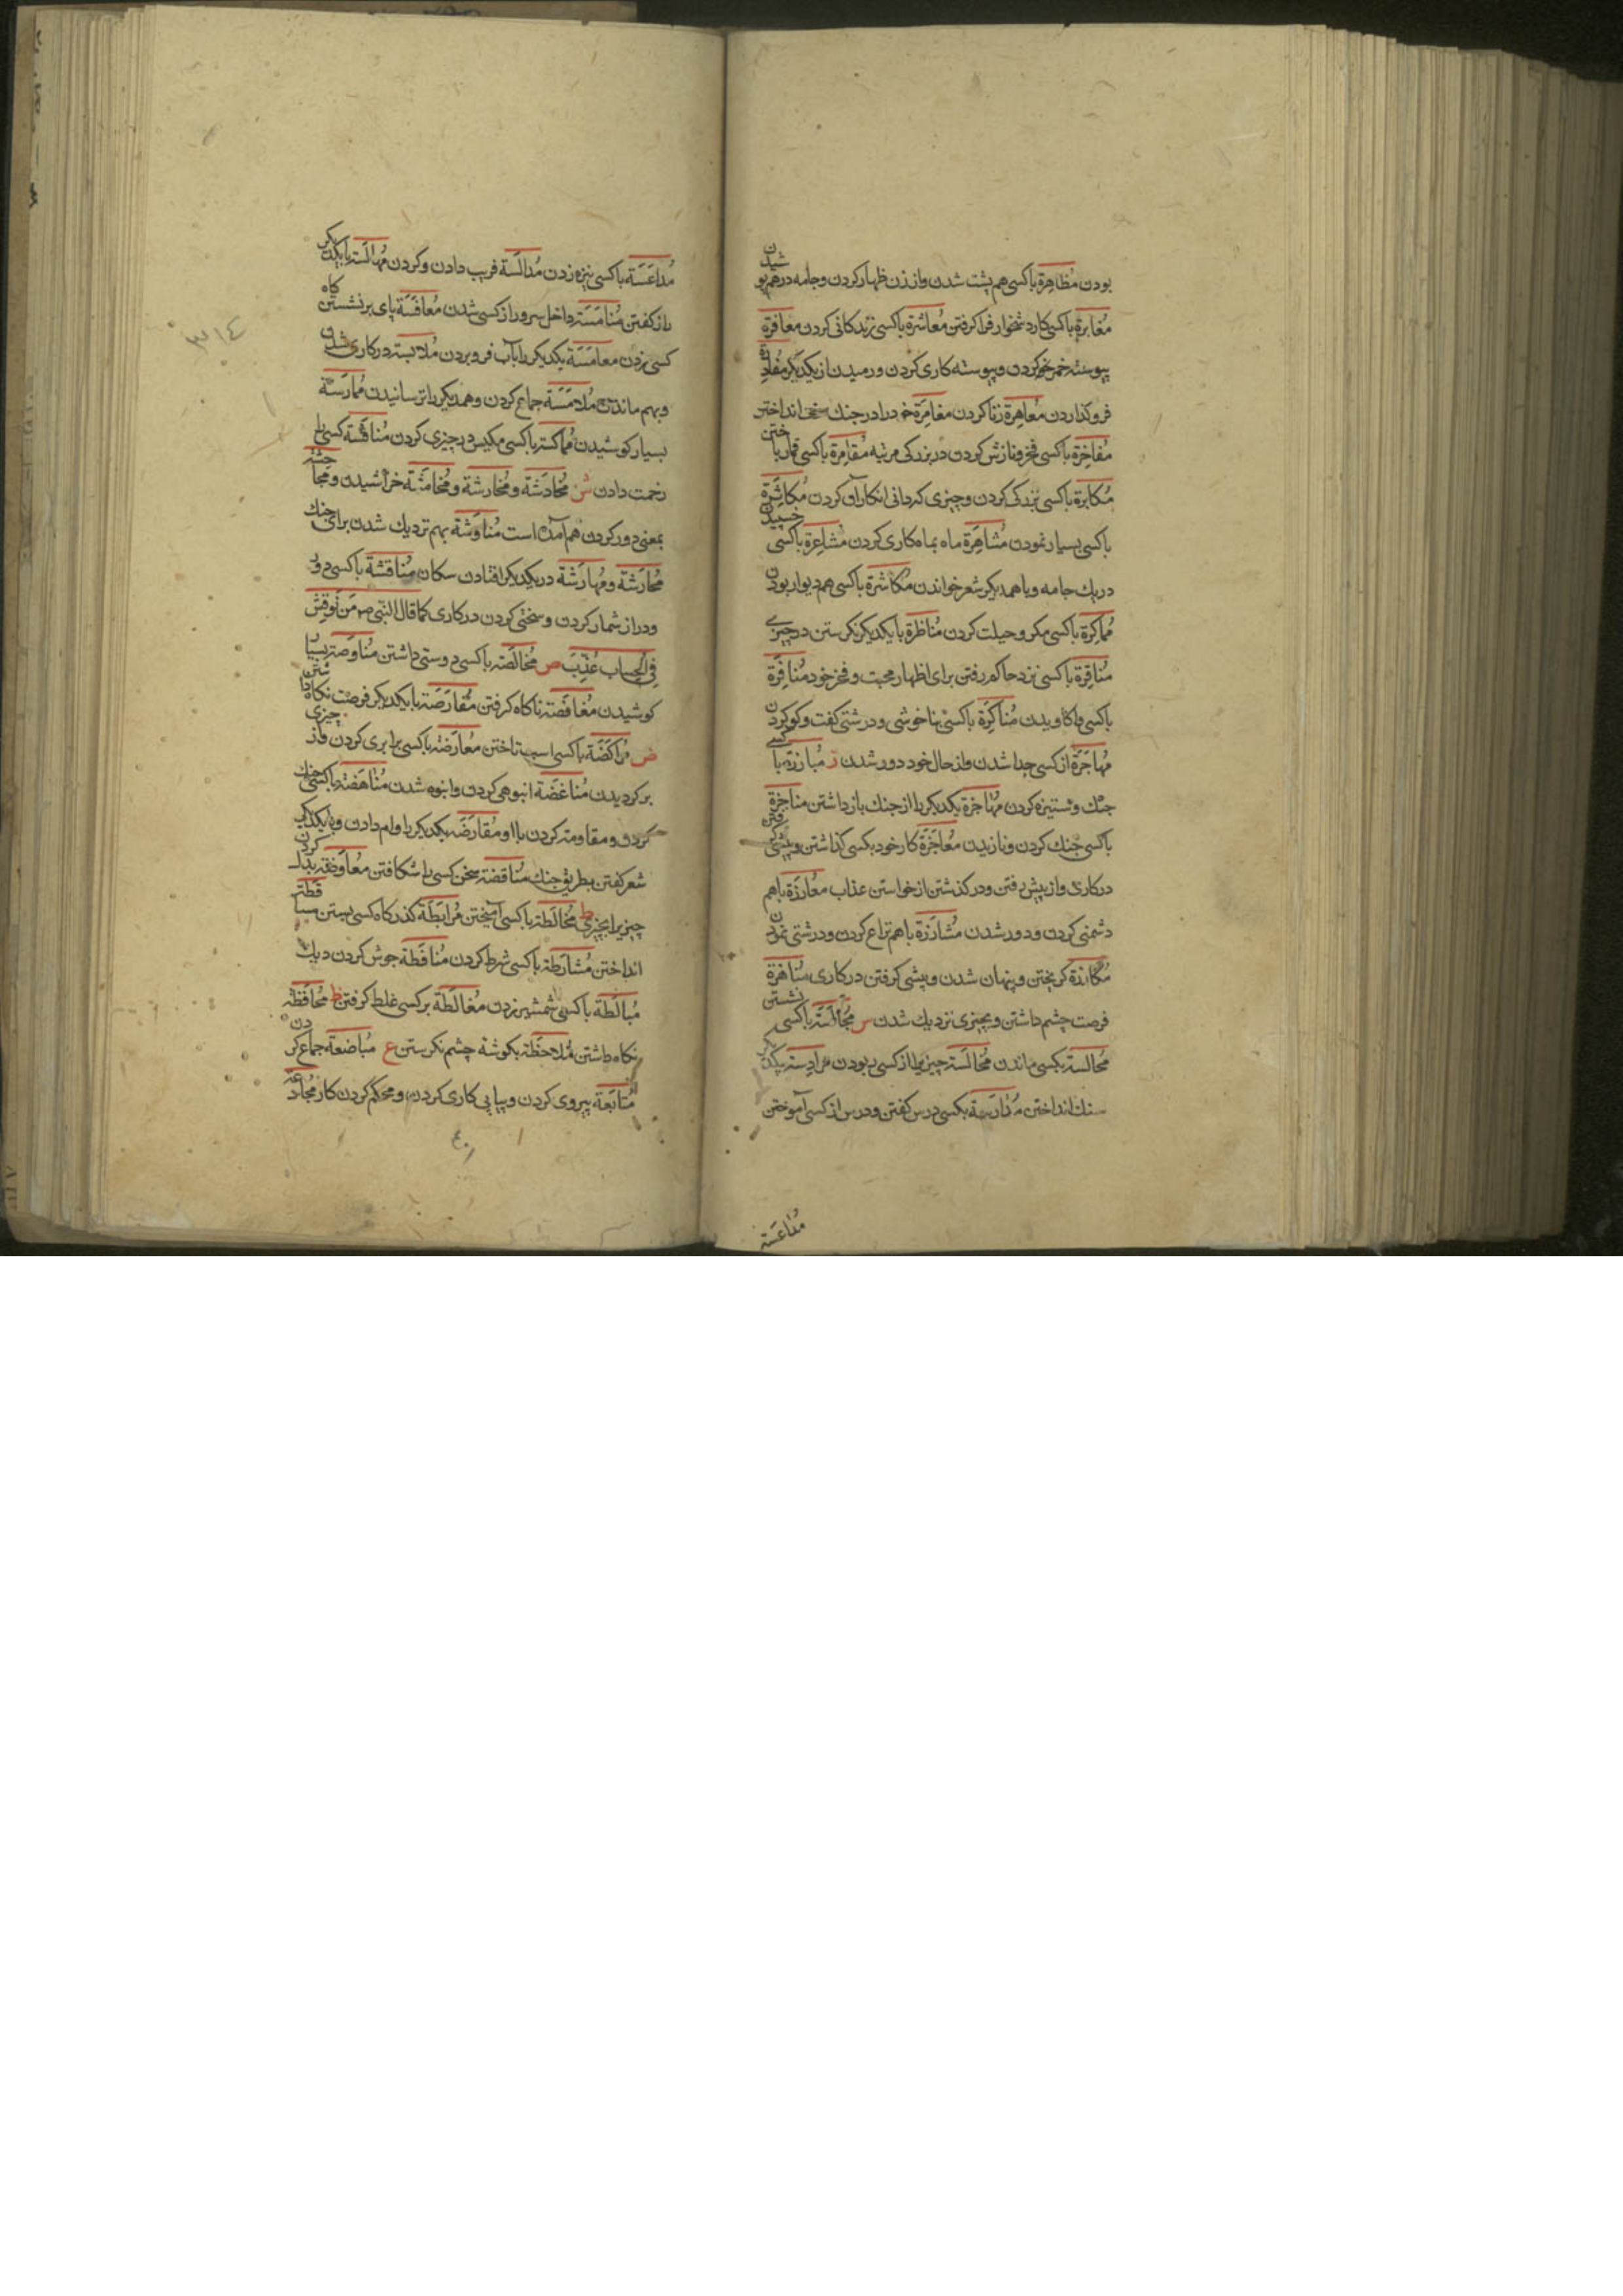 بودن مُظاهرة باکسی هم پشت شدن واز زن ظهار کردن وجامه درهم پوشیدن
مُغابرة باکسی کار دشخوار فرا کرفتن مُعاشرة باکسی زندکانی کردن معاقرة
پیوسته خمر خوردن وپیوسته کاری کردن ورمیدن از یکدیکر
فروکذاردن مُعاهرة زنا کردن مغامرة خود را در جنك سخت انداختن
مُفاخرة باکسی فخر ونازش کردن در بزرکی مرتبه مُقامرة باکسی قمار باختن
مُکابرة باکسی بزرکی کردن وچیزی که دانی انکار آن کردن مُکاثرة
باکسی بسیار نمودن مُشاهَرة ماه بماه کاری کردن مُشاعرة باکسی خسپیدن
در یك جامه وباهمدیکر شعر خواندن مُکاشرة باکسی هم دیوار بودن
مُماکرة باکسی مکر وحیلت کردن مُناظرة بایکدیکر نکرستن در چیزی
مُناقرة باکسی نزد حاکم رفتن برای اظهار محبت وفخر خود مُنافرة
باکسی واکاویدن مُناکَرة باکسی بناخوشی ودرشتی کفت وکو کردن
مُهاجَرة از کسی جدا شدن واز حال خود دور شدن ز مُبارزة با کسی
جنك وستیزه کردن مُهاجزة یکدیکر را از جنك باز داشتن مناجزة
باکسی جنك کردن ونازیدن مُعاجَزة کار خود بکسی کذاشتن وپیشی کرفتن
در کاری واز پیش رفتن ودر کذشتن از خواستن عذاب معارَزة باهم
دشمنی کردن ودور شدن مُشارَزة باهم نزاع کردن ودرشتی نمودن
مُکارَزة کریختن وپنهان شدن وپیشی کرفتن در کاری مُناهزة
فرصت چشم داشتن وبچیزی نزدیك شدن س مُجالَسَة باکسی نشستن
مُجالسة بکسی ماندن مُخالَسَة چیزی را از کسی ربودن مرادسة بیکدیکر
سنك انداختن مُدارسة بکسی درس کفتن ودرس از کسی آموختن
مُداعَسَة
مُداعَسَة باکسی نیزه زدن مُدالَسَة فریب دادن وکردن مُهالَسَة بایکدیکر
راز کفتن مُنامَسَة داخل سر وراز کسی شدن مُعاقَسَة پای بر نشستن کاه
کسی زدن معامَسَة یکدیکر را بآب فرو بردن مُلابسة در کاری شدن
وبهم ماندن مُلامَسَة جماع کردن وهمدیکر را ترسانیدن مُمارَسَة
بسیار کوشیدن مُماکسَة باکسی مکیس در چیزی کردن مُنافَسَة کسی را
زحمت دادن ش مُخادَشَة ومُخارشة ومُخامَشَة خراشیدن ومُجاحشة
بمعنی دور کردن هم آمده است مُناوَشَة بهم نزدیك شدن برای جنك
مُحارَشَة ومُهارَشَة در یکدیکر افتادن سکان مُناقشَة باکسی دور
ودراز شمار کردن وسختی کردن در کاری کما قال النبی ص مَن نُوقِشَ
فِی الحِساب عُذِّبَ ص مُخالَصَة باکسی دوستی داشتن مُناوَصَة بسیار
کوشیدن مُغافَصَة ناکاه کرفتن مُفارَصَة بایکدیکر فرصت نکاه داشتن
ض مُراکَضَة باکسی اسب تاختن مُعارَضَة باکسی برابری کردن واز چیزی
برکردیدن مُناغَضَة انبوهی کردن وانبوه شدن مُناهَضَة باکسی جنك
کردن ومقاومة کردن با او ومُقارَضَة یکدیکر را وام دادن وبا یکدیکر
شعر کفتن بطریق جنك مُناقضة سخن کسی را شکافتن مُعاوَضَة بدل کردن
چیزی را بچیزی ط مُخالَطَة باکسی آمیختن مُرابَطَة کذرکاه کسی بستن
انداختن مُشارَطَة باکسی شرط کردن مُنافَطَة جوش کردن دیك
مُبالَطَة باکسی شمشیر زدن مُغالَطَة بر کسی غلط کرفتن ظ مُحافَظَة
نکاه داشتن مُلاحَظَة بکوشه چشم نکرستن ع مُباضعة جماع کردن
مُتابَعَة پیروی کردن وپیاپی کاری کردن ومحکم کردن کار مُجادعة
٣١٤